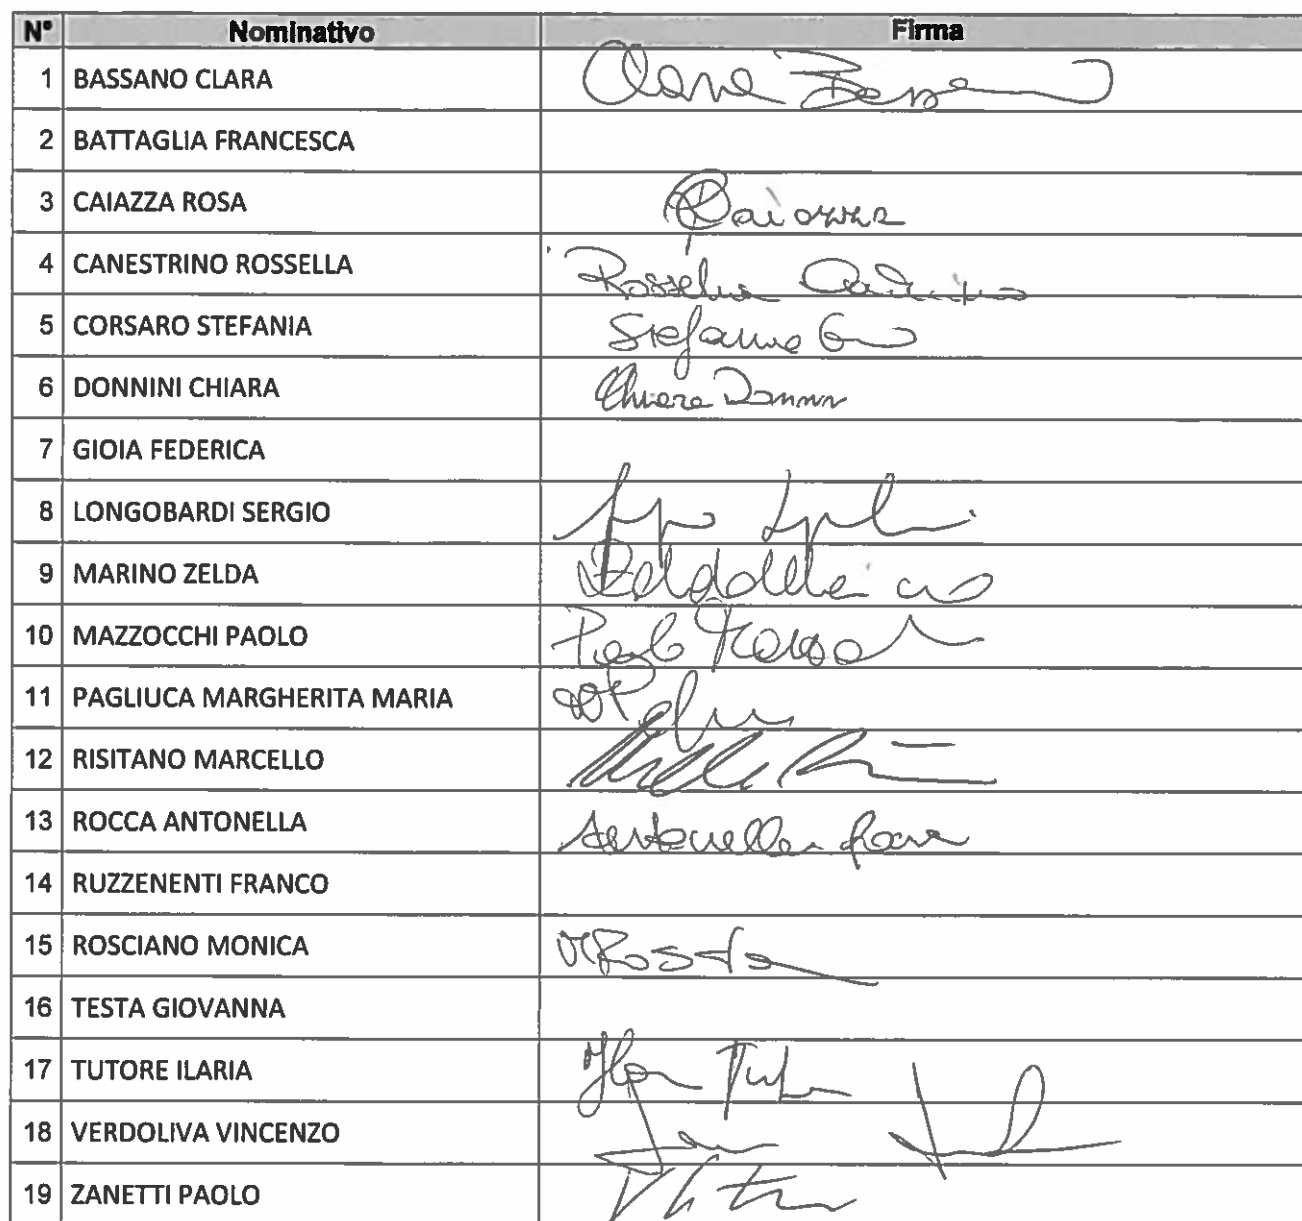 N° Nominativo Firma
1 BASSANO CLARA
2 BATTAGLIA FRANCESCA
3 CAIAZZA ROSA Caiazza
4 CANESTRINO ROSSELLA Rossella
5 CORSARO STEFANIA Stefania
6 DONNINI CHIARA Chiara Donnini
7 GIOIA FEDERICA
8 LONGOBARDI SERGIO
9 MARINO ZELDA Zelda
10 MAZZOCCHI PAOLO Paolo
11 PAGLIUCA MARGHERITA MARIA
12 RISITANO MARCELLO
13 ROCCA ANTONELLA Antonella Rocca
14 RUZZENENTI FRANCO
15 ROSCIANO MONICA
16 TESTA GIOVANNA
17 TUTORE ILARIA
18 VERDOLIVA VINCENZO
19 ZANETTI PAOLO